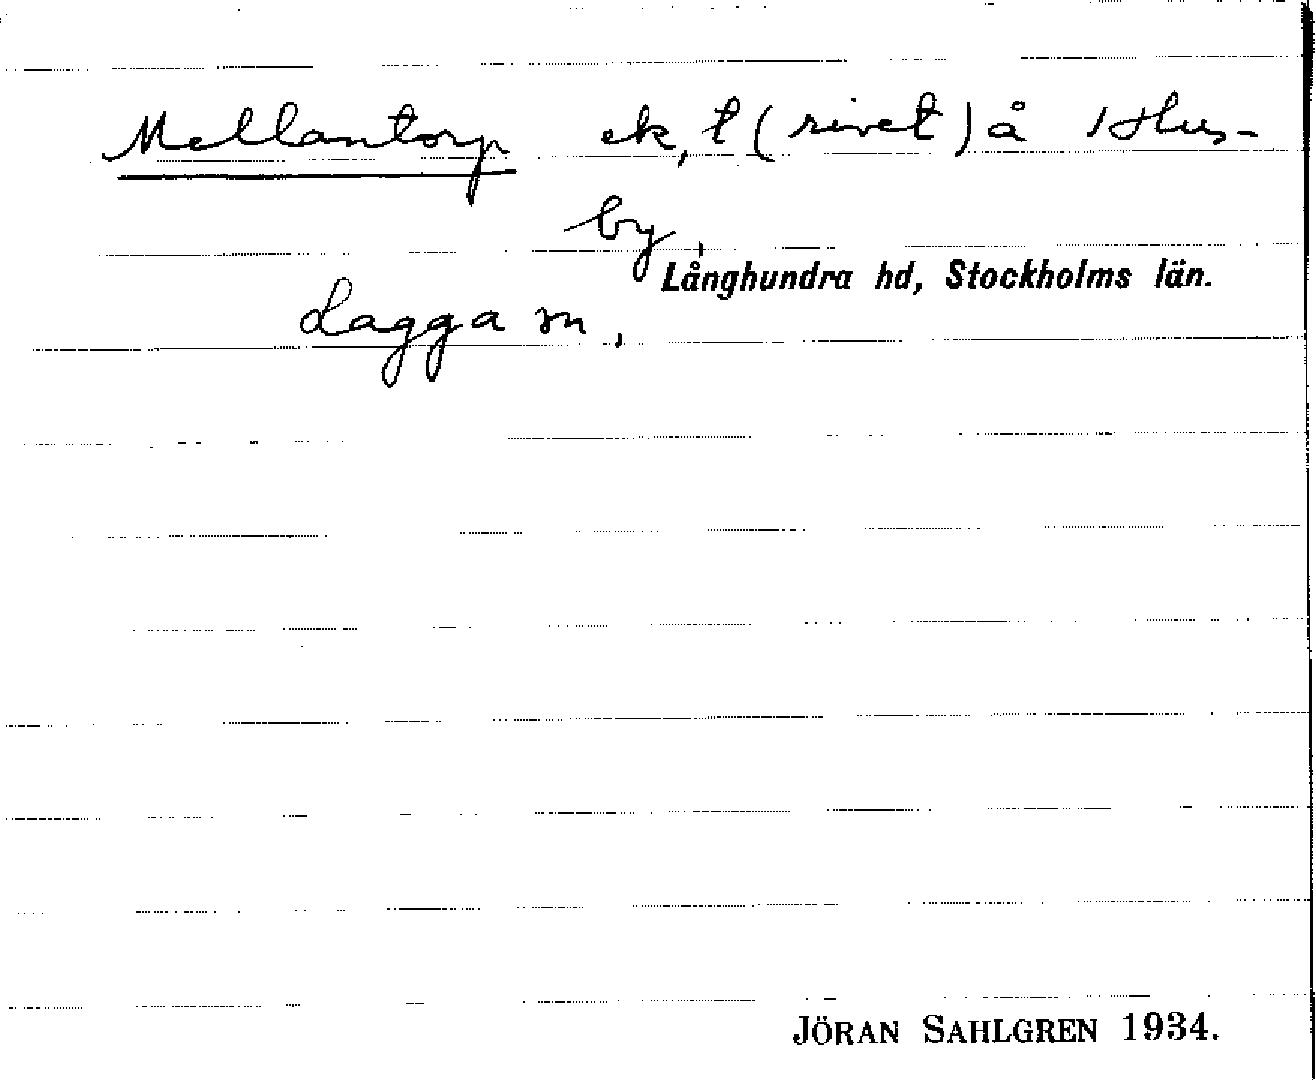 Mellantorp ek, t (rivet) å Hus-
by,
Långhundra hd, Stockholms län.
Lagga sn,
JÖRAN SAHLGREN 1934.